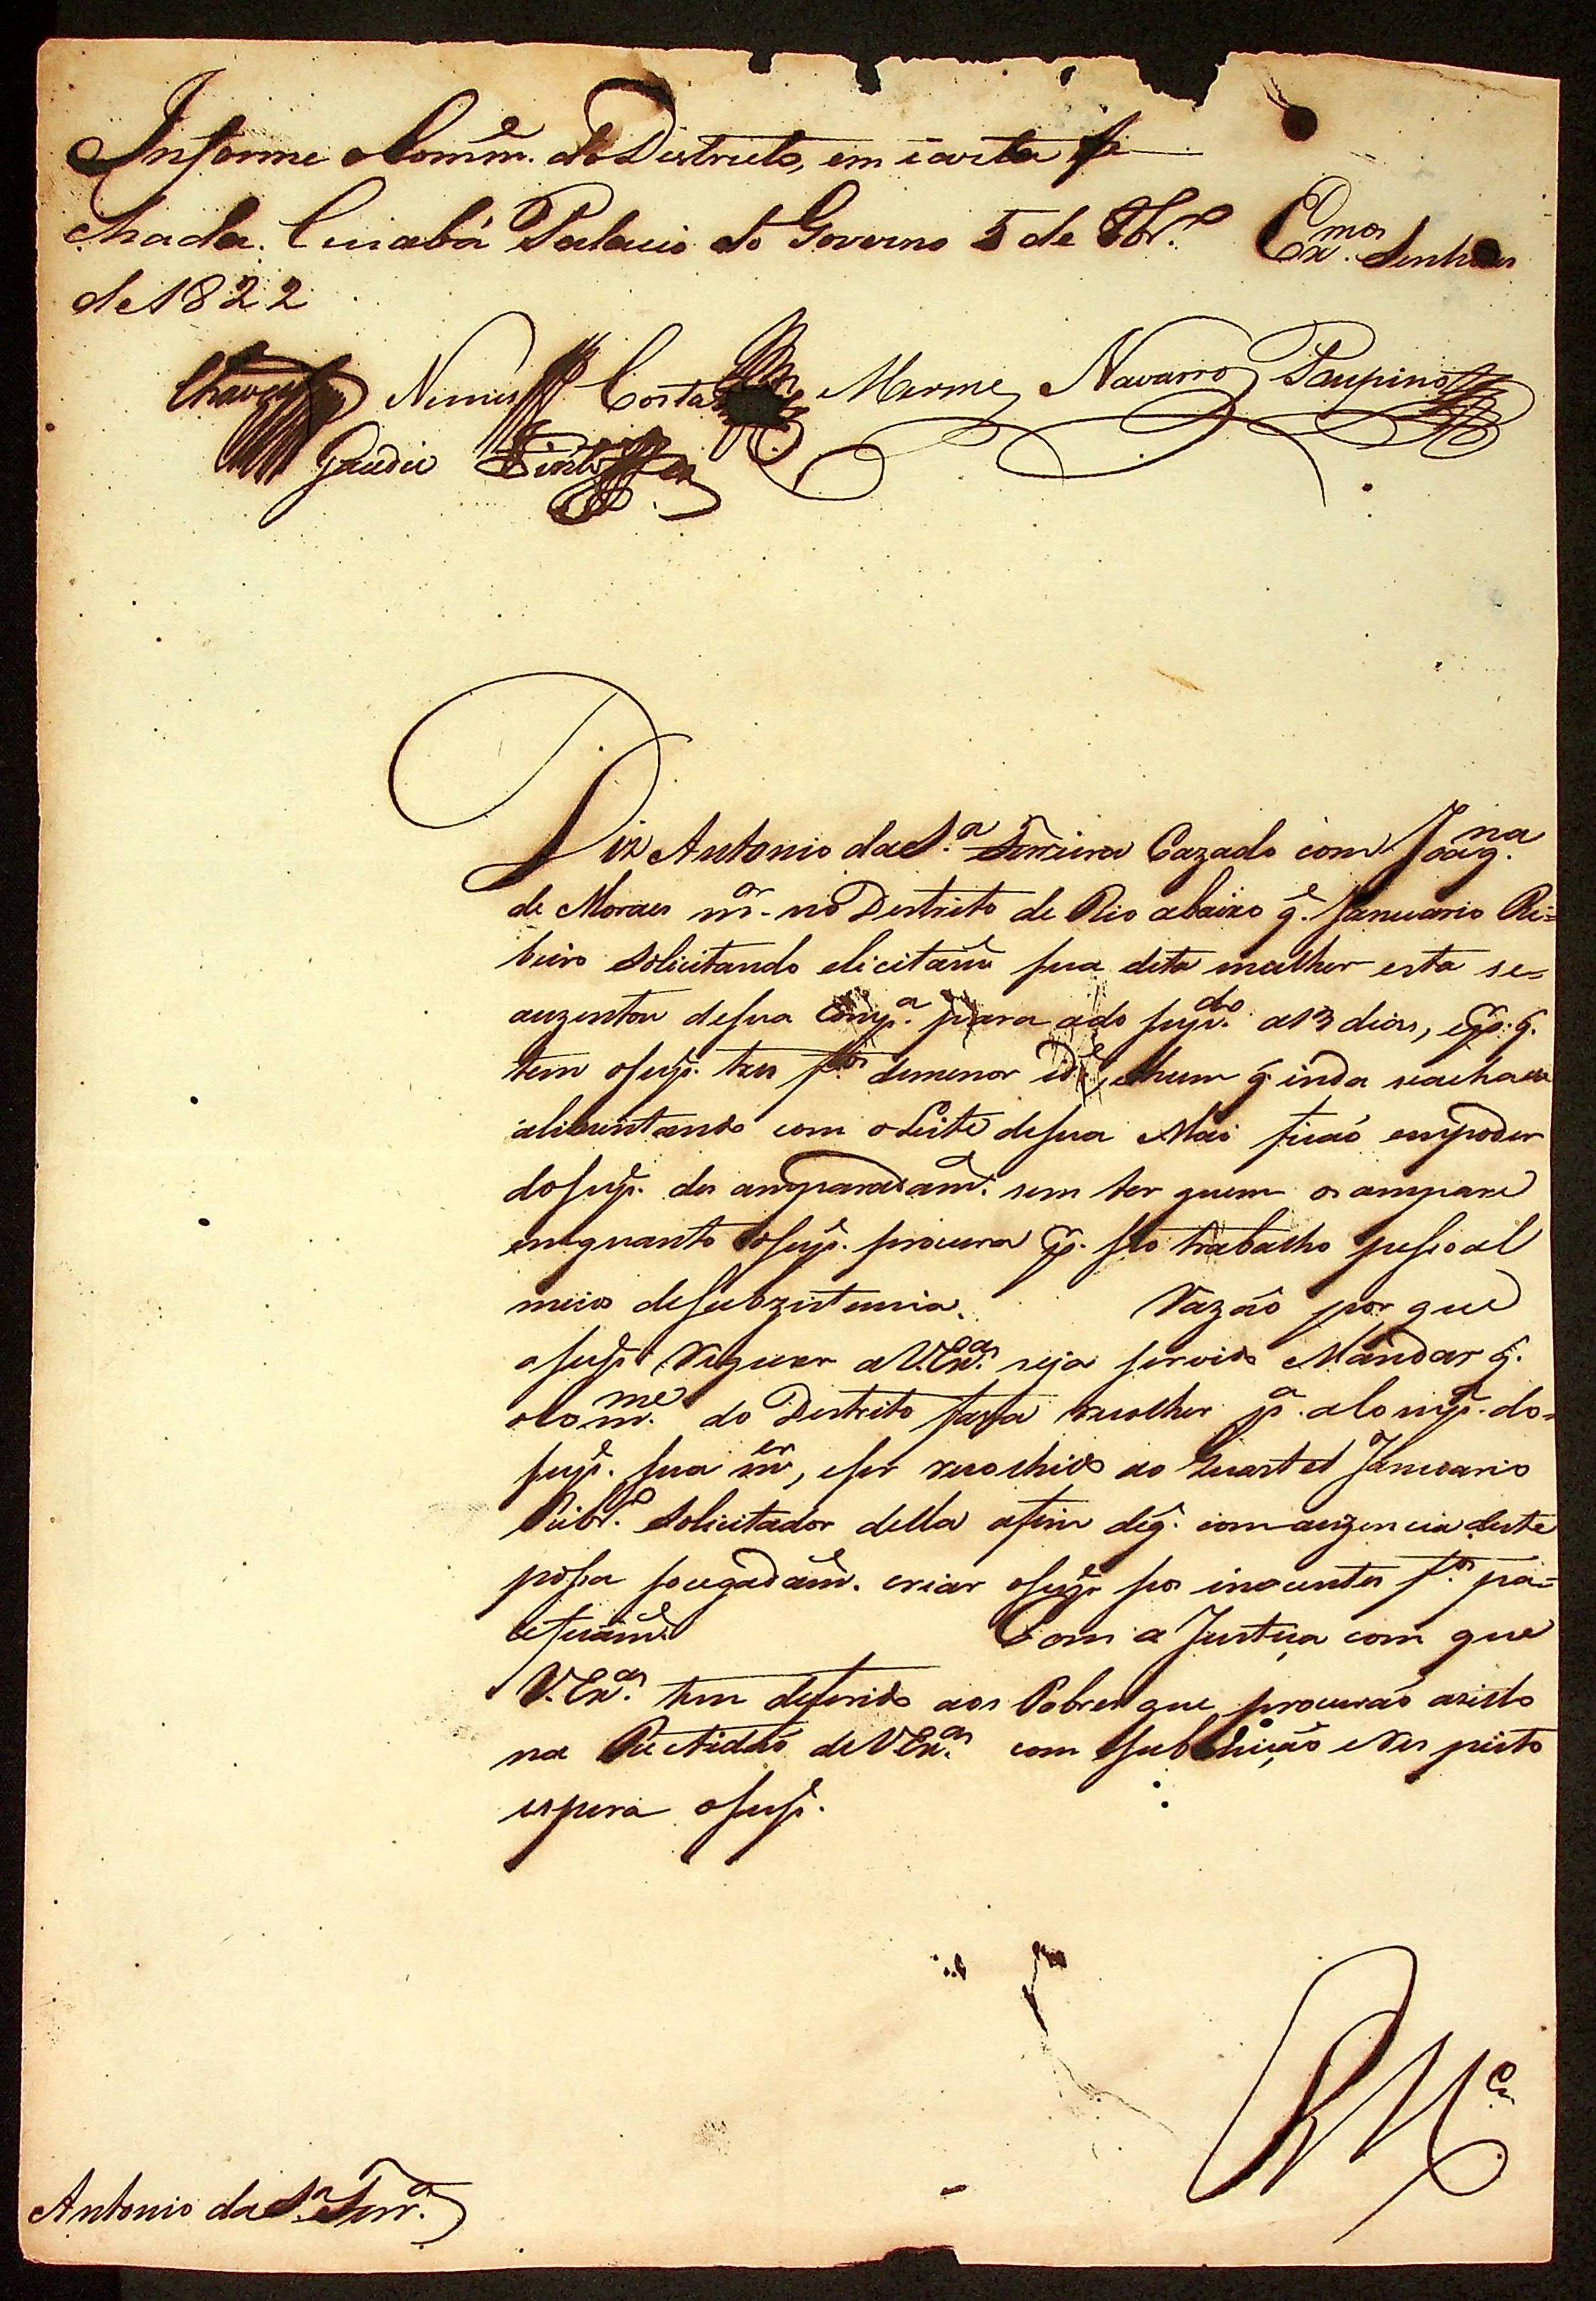 Informe o Comm.e do Districto, em carta fe
chada. Cuiabá Palacio do Governo 5 de 8br.o
de 1822
Ex.mos Senhores
Chaves Nunes Costa Merme Navarro Paupino
Gaudie Pinto
Diz Antonio da S.a Ferreira Cazado com Joaq.na
de Moraes m.or no Destrito de Rio abaixo q.e Januario Ri=
beiro solicitando elicitam.e sua dita mulher esta se=
auzentou desua Comp.a para ado sup.do a 13 dias, e p.r q.
tem osup.e tres f.os demenor id.e, e hum q. inda seacha
alimentando com oLeite desua Mai ficaõ empoder
dosup.e des amparadam.e sem ter quem os ampare
emquanto osup.e procura p.r seo trabalho pesioal
meios desubzistencia. Razaõ por que
osup.e Requer a V.Ex.as seja servido Mandar q.
oCom.me do Destrito faça recolher p.a a Comp.a do=
sup.e sua m.er, eser recolhido ao Quartel Januario
Ribr.o Solicitador della afim deq. com auzencia deste
posa socegadam.e criar osup.e seos inocentes f.os pa=
cificam.e Com a Justiça com que
V.Ex.as tem deferido aos Pobres que procuraõ azilo
na Rectidaõ de V.Ex.as com submiçaõ e Res peito
espera osup.e
E R M.ce
Antonio da S.a Ferr.a